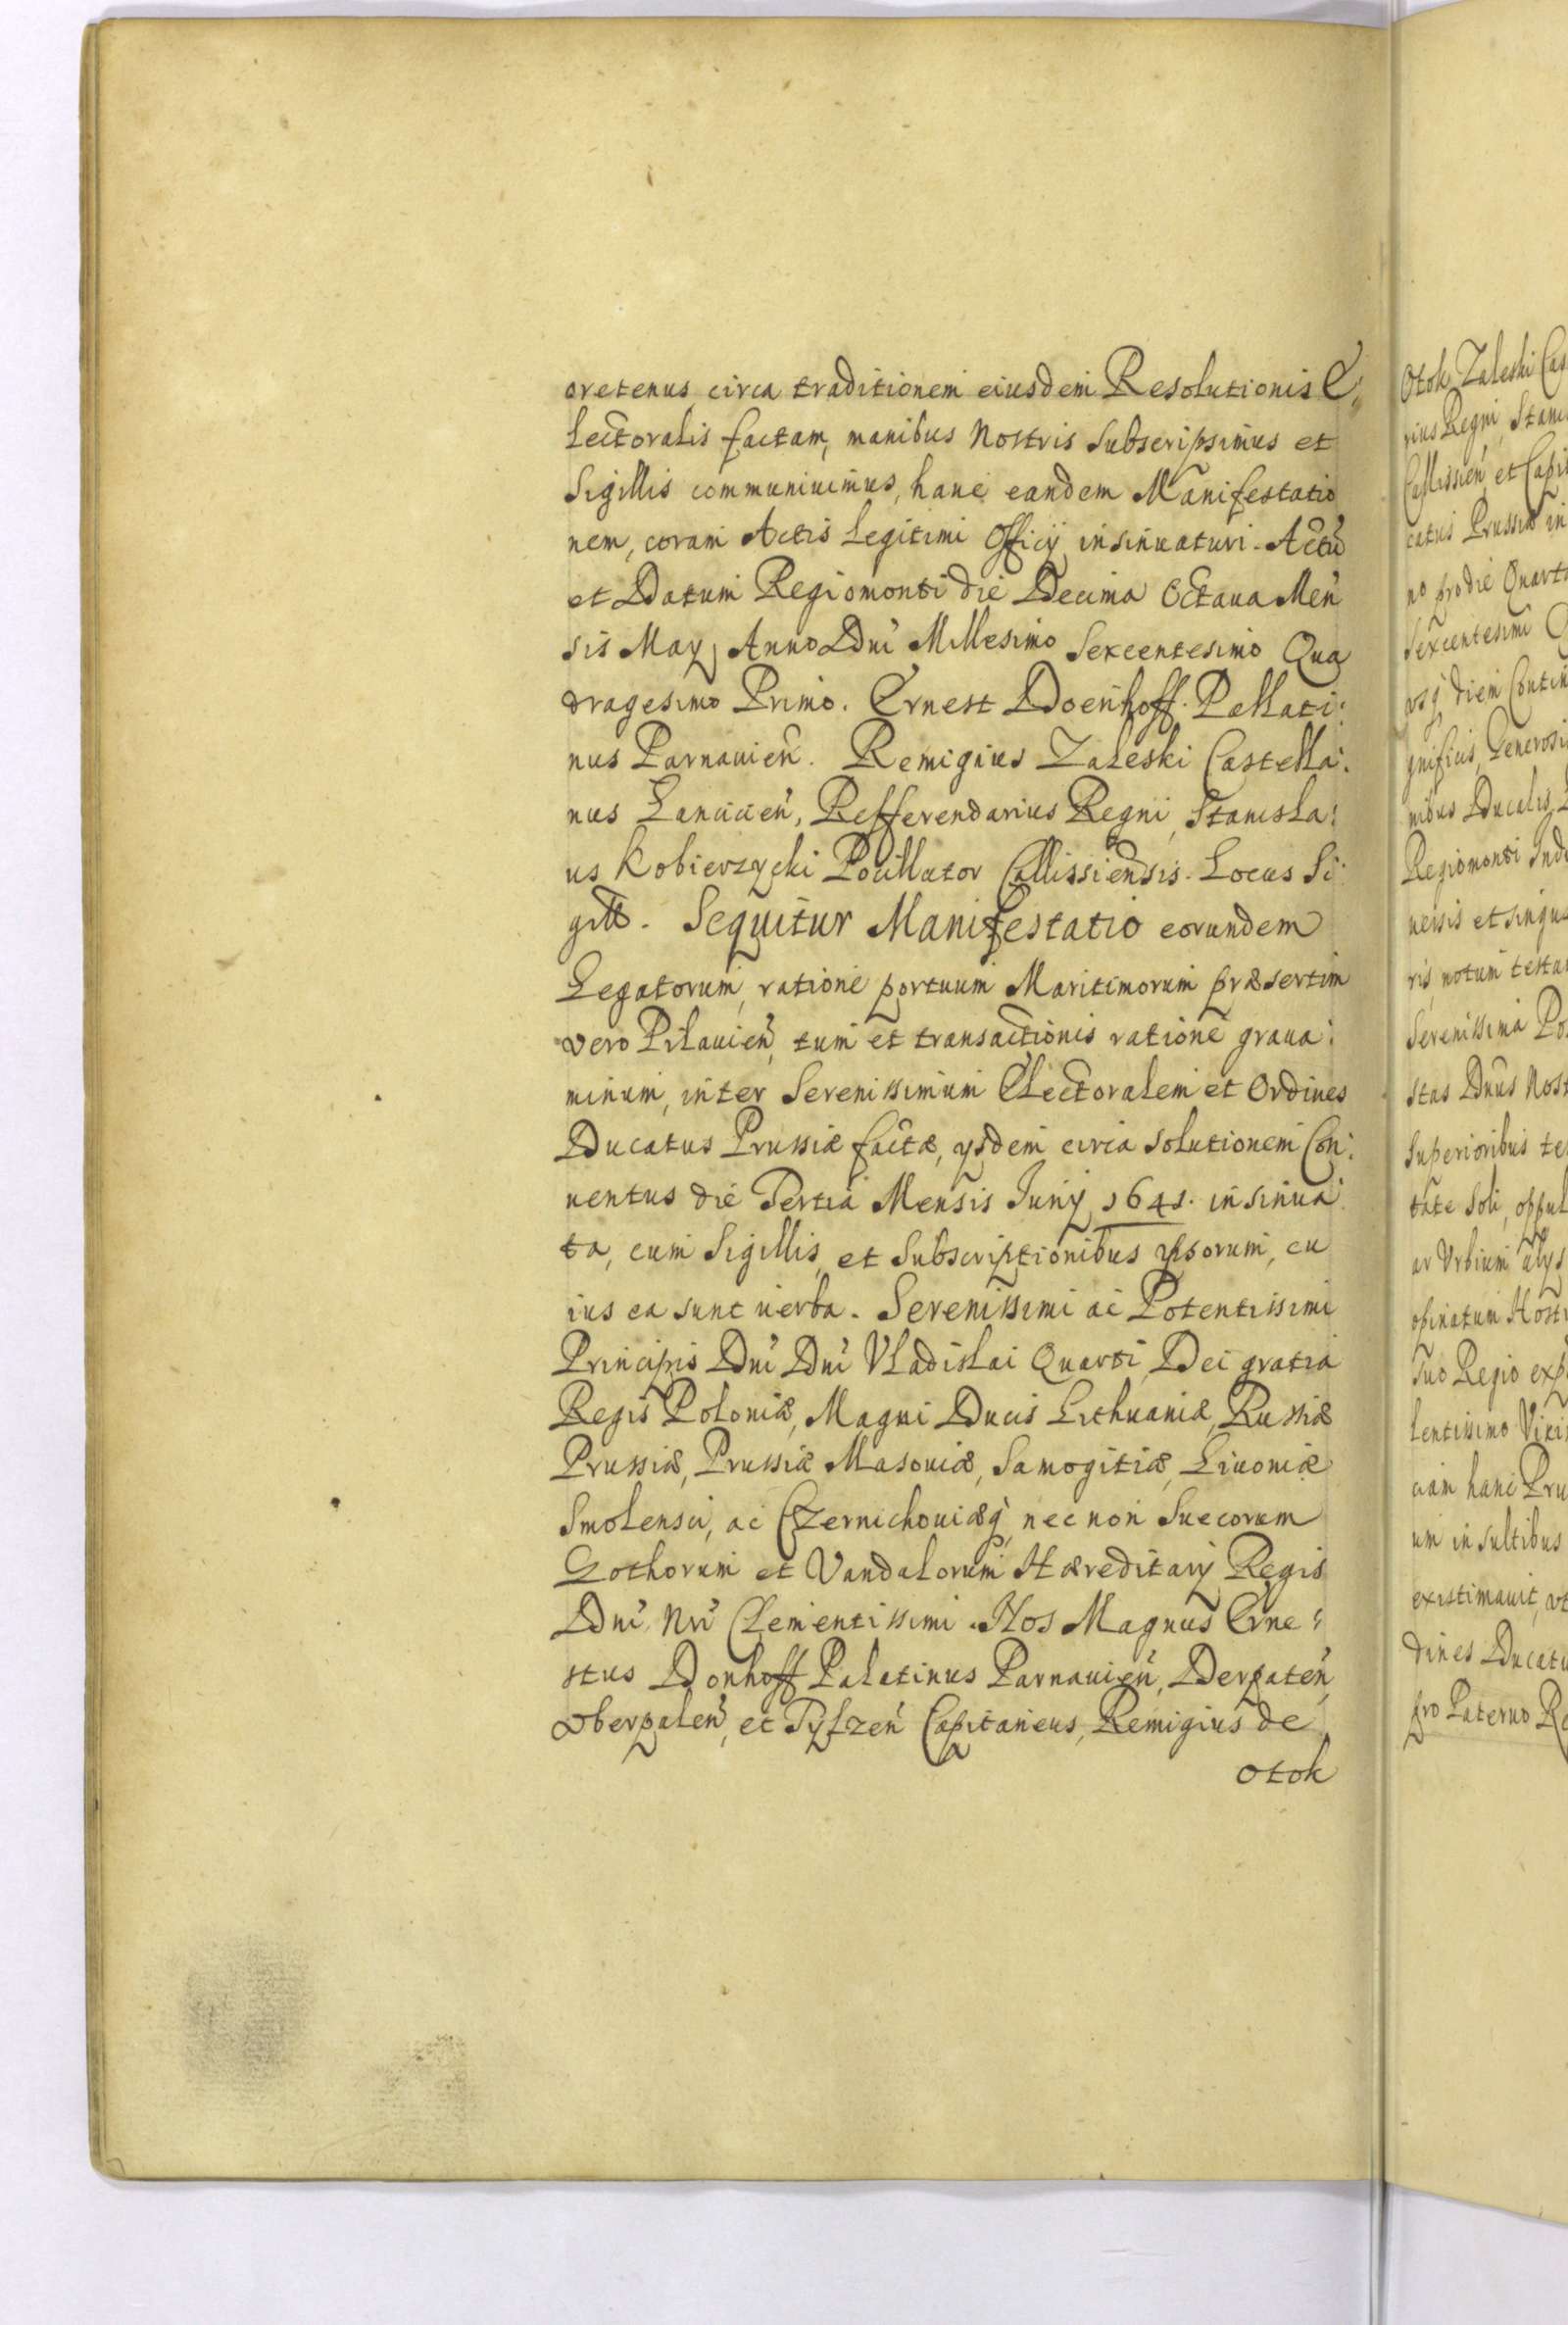 oretenus circa traditionem eiusdem Resolutionis E,,
lectoralis factam, manibus Nostris subscripsimus et
Sigillis communiuimus, hanc eandem Manifestatio
nem, coram Actis Legitimi Officij insinuaturi. Actũ
et Datum Regiomonti die Decima Octaua Men
sis Maij Anno Dni Millesimo Sexcentesimo Qua
dragesimo Primo. Ernest Doenhoff. Pallati:
nus Parnauień. Remigius Zaleski Castella:
nus Lancicień, Refferendarius Regni, Stanisla:
us Kobierzycki Pocillator Callissiensis. Locus Si:
gilli. Sequitur Manifestatio eorundem
Legatorum, ratione portuum Maritimorum præsertim
vero Pilauień, tum et transactionis ratione graua:
minum, inter Serenissimum Electoralem et Ordines
Ducatus Prussiæ factæ, ysdem circa solutionem Con:
uentus die Tertia Mensis Junij 1641. insinua:
ta, cum Sigillis, et Subscriptionibus ipsorum, cu
ius ea sunt uerba. Serenissimi ac Potentissimi
Principis Dni Dni Vladislai Quarti, Dei gratia
Regis Poloniæ, Magni Ducis Lithuaniæ, Russiæ
Prussiæ, Prussiæ Masouiæ, Samogitiæ, Liuoniæ
Smolensci, ac Czernichouiæq́, nec non Suecorum
Gothorum et Vandalorum Hæreditarij Regis
Dni Nri Clementissimi. Nos Magnus Erne:
stus Donhoff Palatinus Parnauień, Derpateń,
Oberpaleń, et Tylzeń Capitaneus, Remigius de
Otok
Otok Zaleski Cas
rius Regni, Stani
Callissień et Capi
catus Prussiæ in
no pro die Quart
Sexcentesimi Q
vsq́ diem Contin
gnificis, Generosi
nibus Ducalis
Regiomonti Ind
uersis et singu
ris, notum testa
Serenissima Po
stas Dnus Nost
Superioribus te
tate soli, oppul
ac Vrbium alys
opinatum Hosti
Suo Regio exp
lentissimo Viri
ciam hanc Pru
um insultibus
existimauit, vt
dines Ducatu
pro Paterno Re